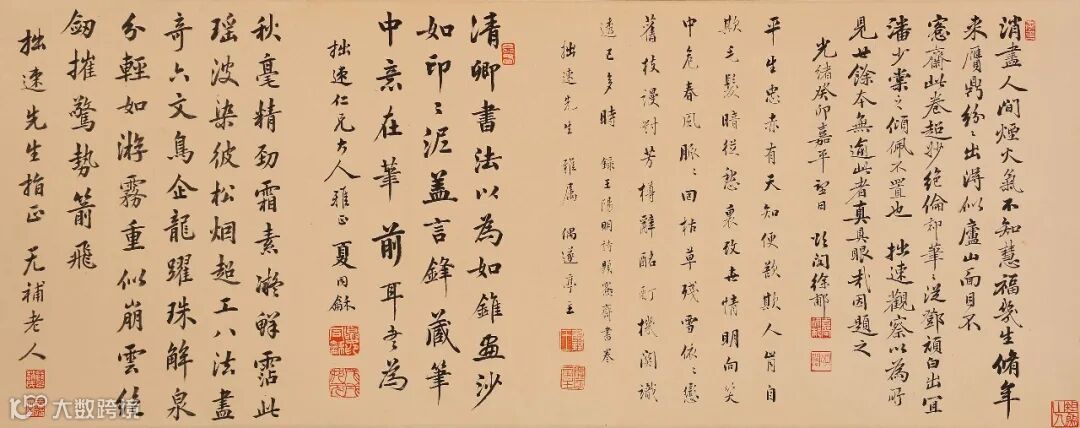 消盡人間煙火氣不知慧福幾生脩年
来贋鼎紛々出得似廬山面目不
窓齋此卷超妙絶倫即筆々從鄧頑白出宜
潘少棠之傾佩不置也 拙速觀察以為所
見廿餘本無逾此者真具眼哉因題之
光緒癸卯嘉平望日 徐鄂
平生忠赤有天知便欲欺人肯自
欺毛髮暗從愁裏改世情明向笑
中危春風脉々回枯草殘雪依々戀
舊枝漫對芳樽辭酩酊機關識
透已多時 錄王陽明
拙速先生 雅屬 偶遂亭主
清卿書法以為如錐畫沙
如印々泥蓋言鋒藏筆
中意在筆前耳書為
拙速仁兄大人雅正 夏同龢
秋毫精勁霜素凝鮮霑此
瑶波染彼松烟超工八法盡
奇六文鳥企龍躍珠解泉
分輕如游霧重似崩雲絶
劒摧驚勢箭飛
拙速先生指正 无補老人
大数跨境